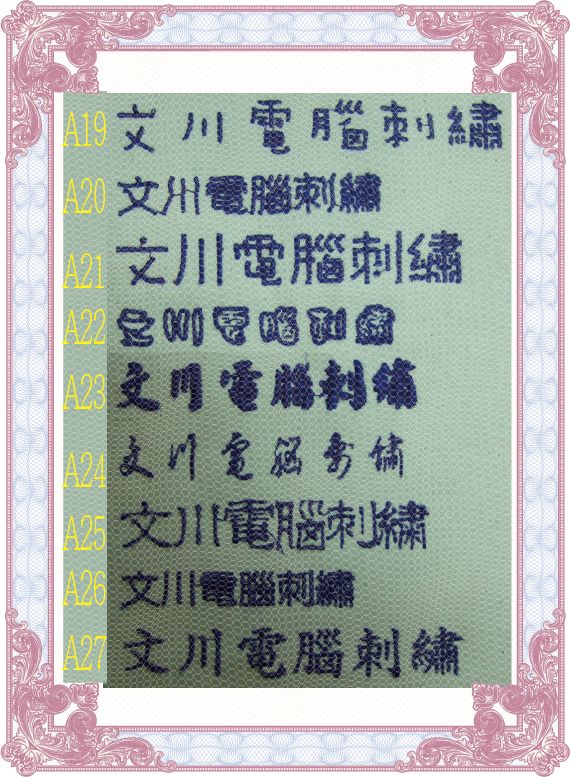 A19 文川電腦刺繡
A20 文川電腦刺繡
A21 文川電腦刺繡
A22 文川電腦刺繡
A23 文川電腦刺繡
A24 文川電腦刺繡
A25 文川電腦刺繡
A26 文川電腦刺繡
A27 文川電腦刺繡